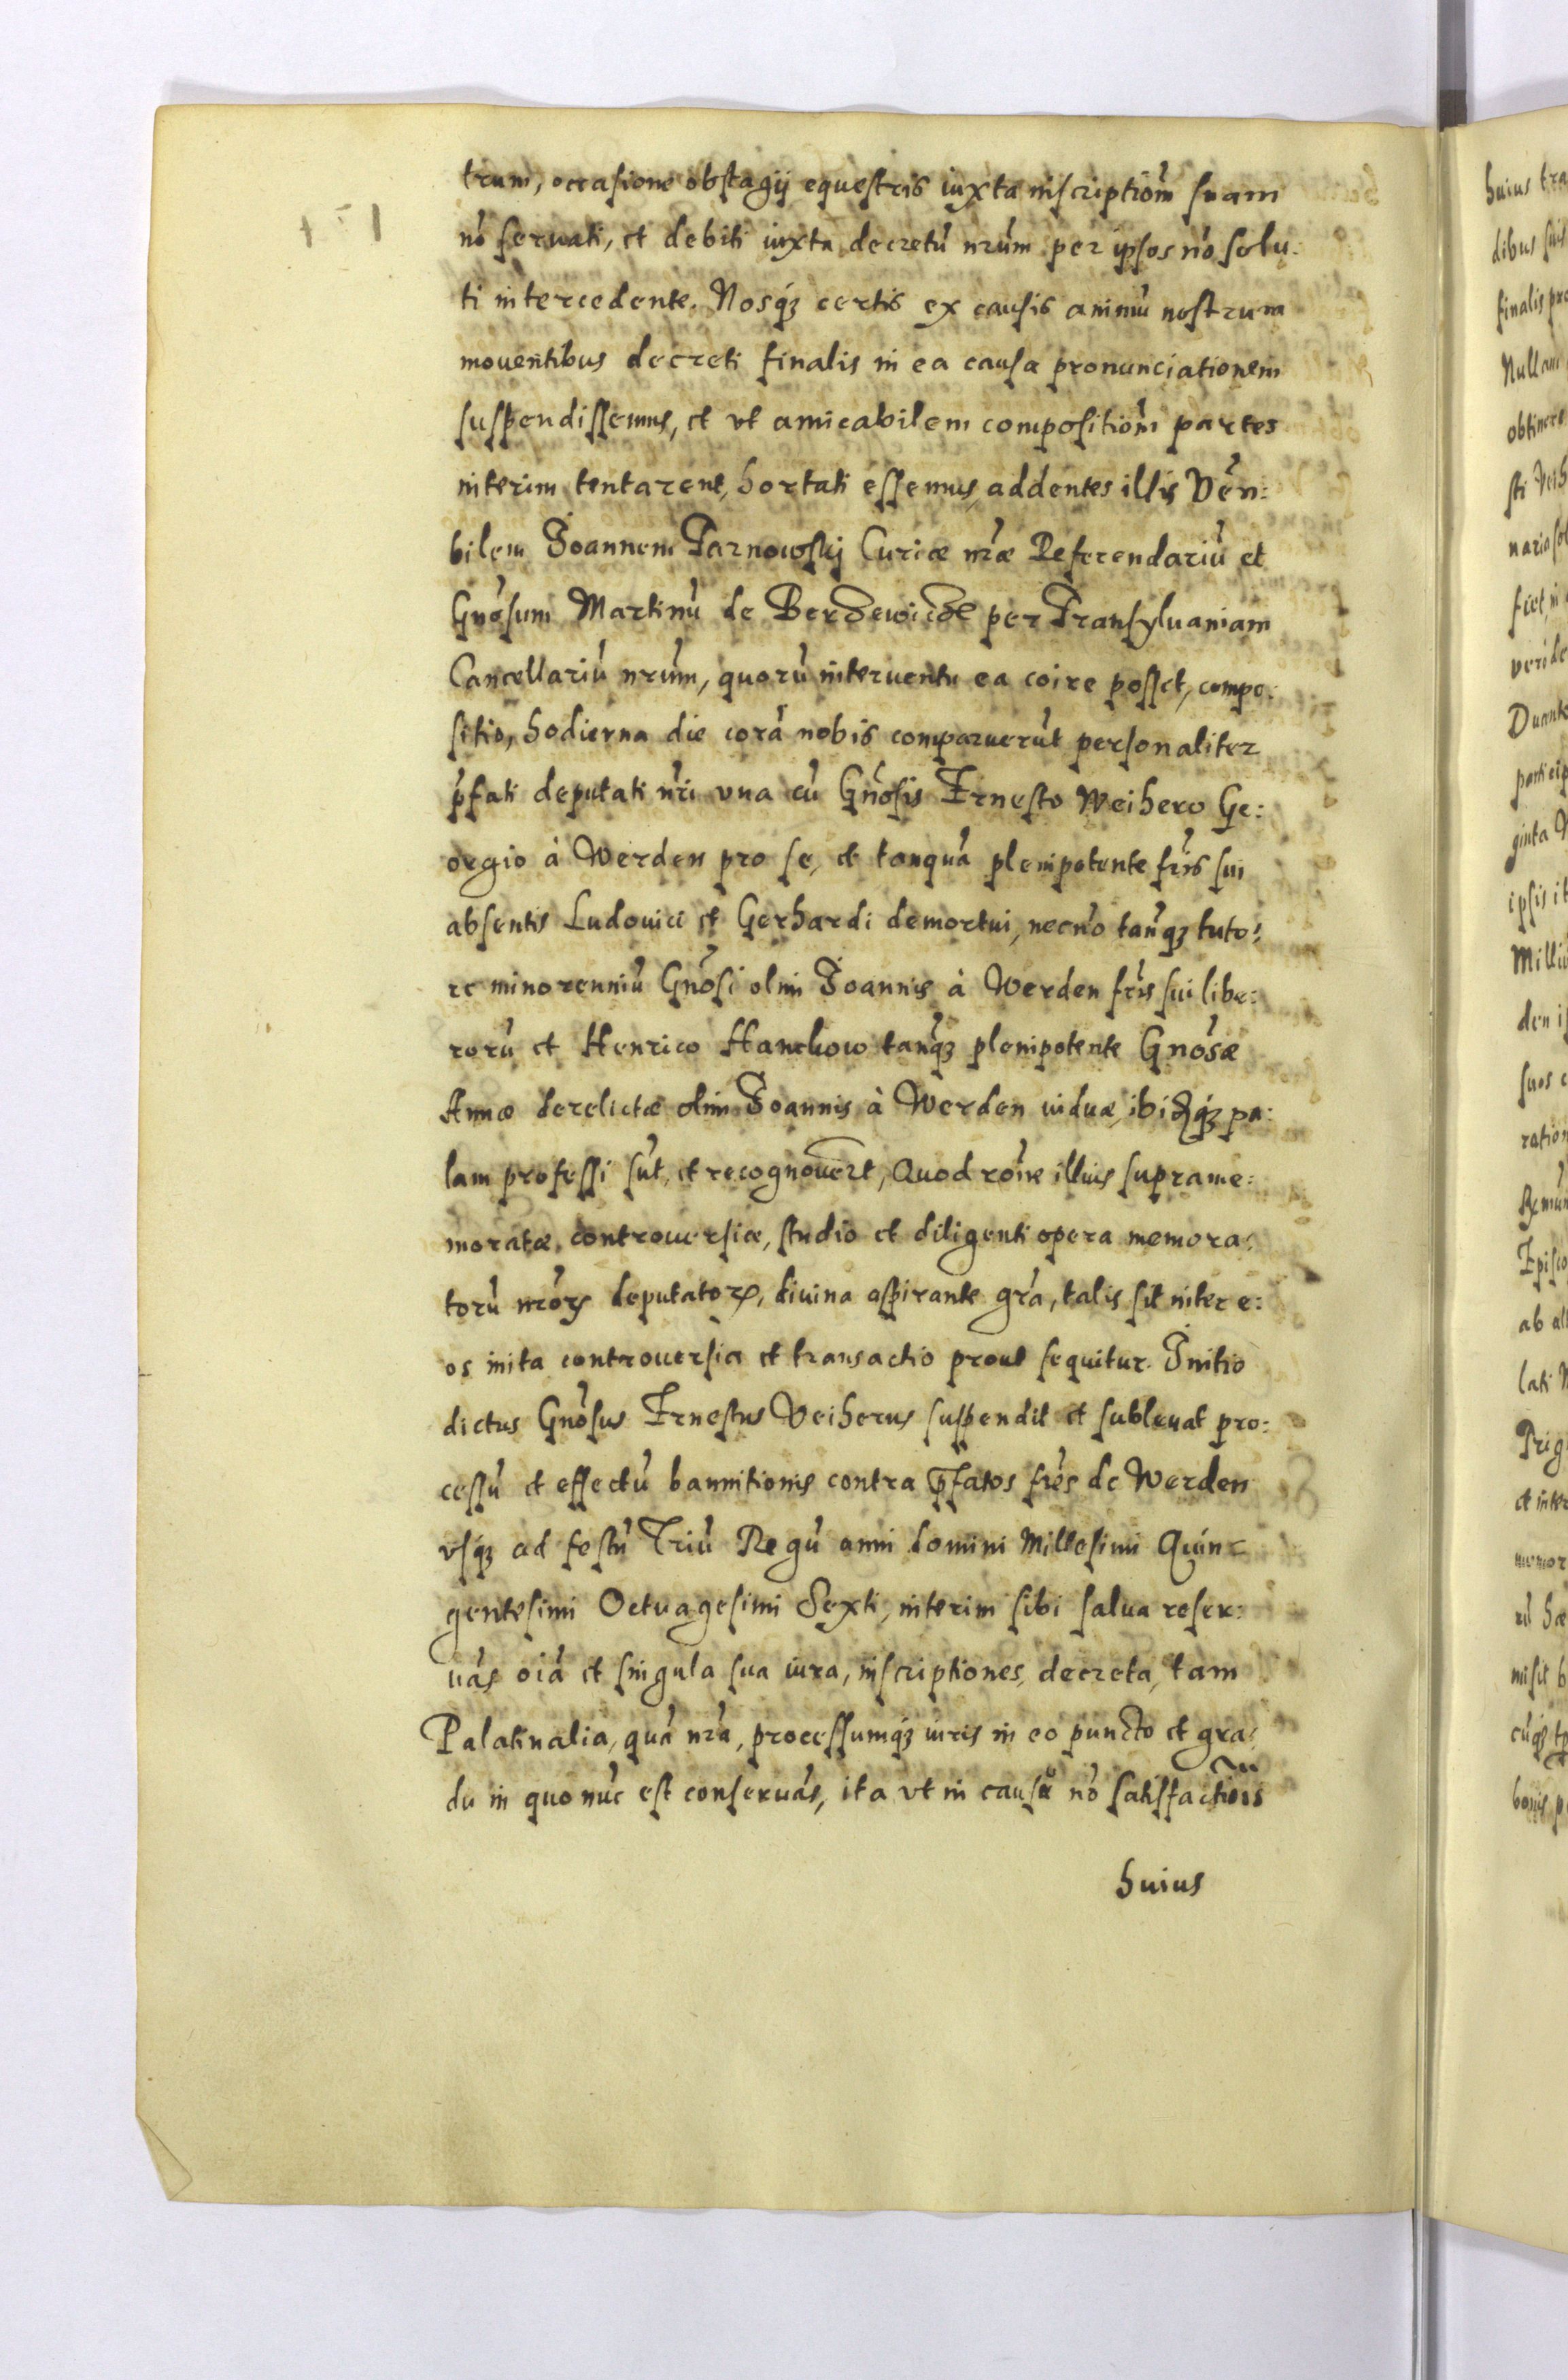 trum, occasione obstagij equestris iuxta inscriptiom̃ suam
nõ seruati, et debiti iuxta decretũ nrũm per ipsos nõ solu:
ti intercedente. Nosq́ꝫ certis ex causis animũ nostrum
mouentibus decreti finalis in ea causa pronunciationem
suspendissemus, et vt amicabilem compositiom̃ partes
interim tentarent, hortati essemus, addentes illis Vẽn:
bilem Joannem Tarnowskj Curiæ nrãe Referendariũ et
Gnõsum Martinũ de Berzewicze per Transyluaniam
Cancellariũ nrũm, quorũ interuentu ea coire posset, compo:
sitio, hodierna die corã nobis comparuerũt personaliter
p̃fati deputati nrĩ vna cũ Gñosis Ernesto Weihero Ge:
orgio à Werden pro se, et tanquã plenipotente frĩs sui
absentis Ludouici et Gerhardi demortui, necnõ tanq̃ꝫ tuto:
re minorenniũ Gnõsi olim Joannis à Werden frĩs sui libe:
rorũ et Henrico Hanckow tanq̃ꝫ plenipotente Gnõsæ
Annæ derelictæ olim Joannis à Werden viduæ, ibidq́ꝫ pa:
lam professi sũt, et recognouert̃, Quod roñe illius suprame:
moratæ controuersiæ, studio et diligenti opera memora:
torũ nrõrꝝ deputatorꝝ, diuina aspirante grã, talis sit inter e:
os inita controuersia et transactio prout sequitur. Initio
dictus Gnõsus Ernestus Veiherus suspendit et subleuat pro:
cessũ et effectũ bannitionis contra p̃fatos frẽs de Werden
vsq́ꝫ ad festũ Triũ Regũ anni domini Millesimi Quin:
gentesimi Octuagesimi Sexti, interim sibi salua reser:
uãs oĩa et singula sua iura, inscriptiones, decreta, tam
Palatinalia, quã nrã, processumq́ꝫ iuris in eo puncto et gra:
du in quo nũc est conseruãs, ita vt in causa nõ satisfactiõis
huius